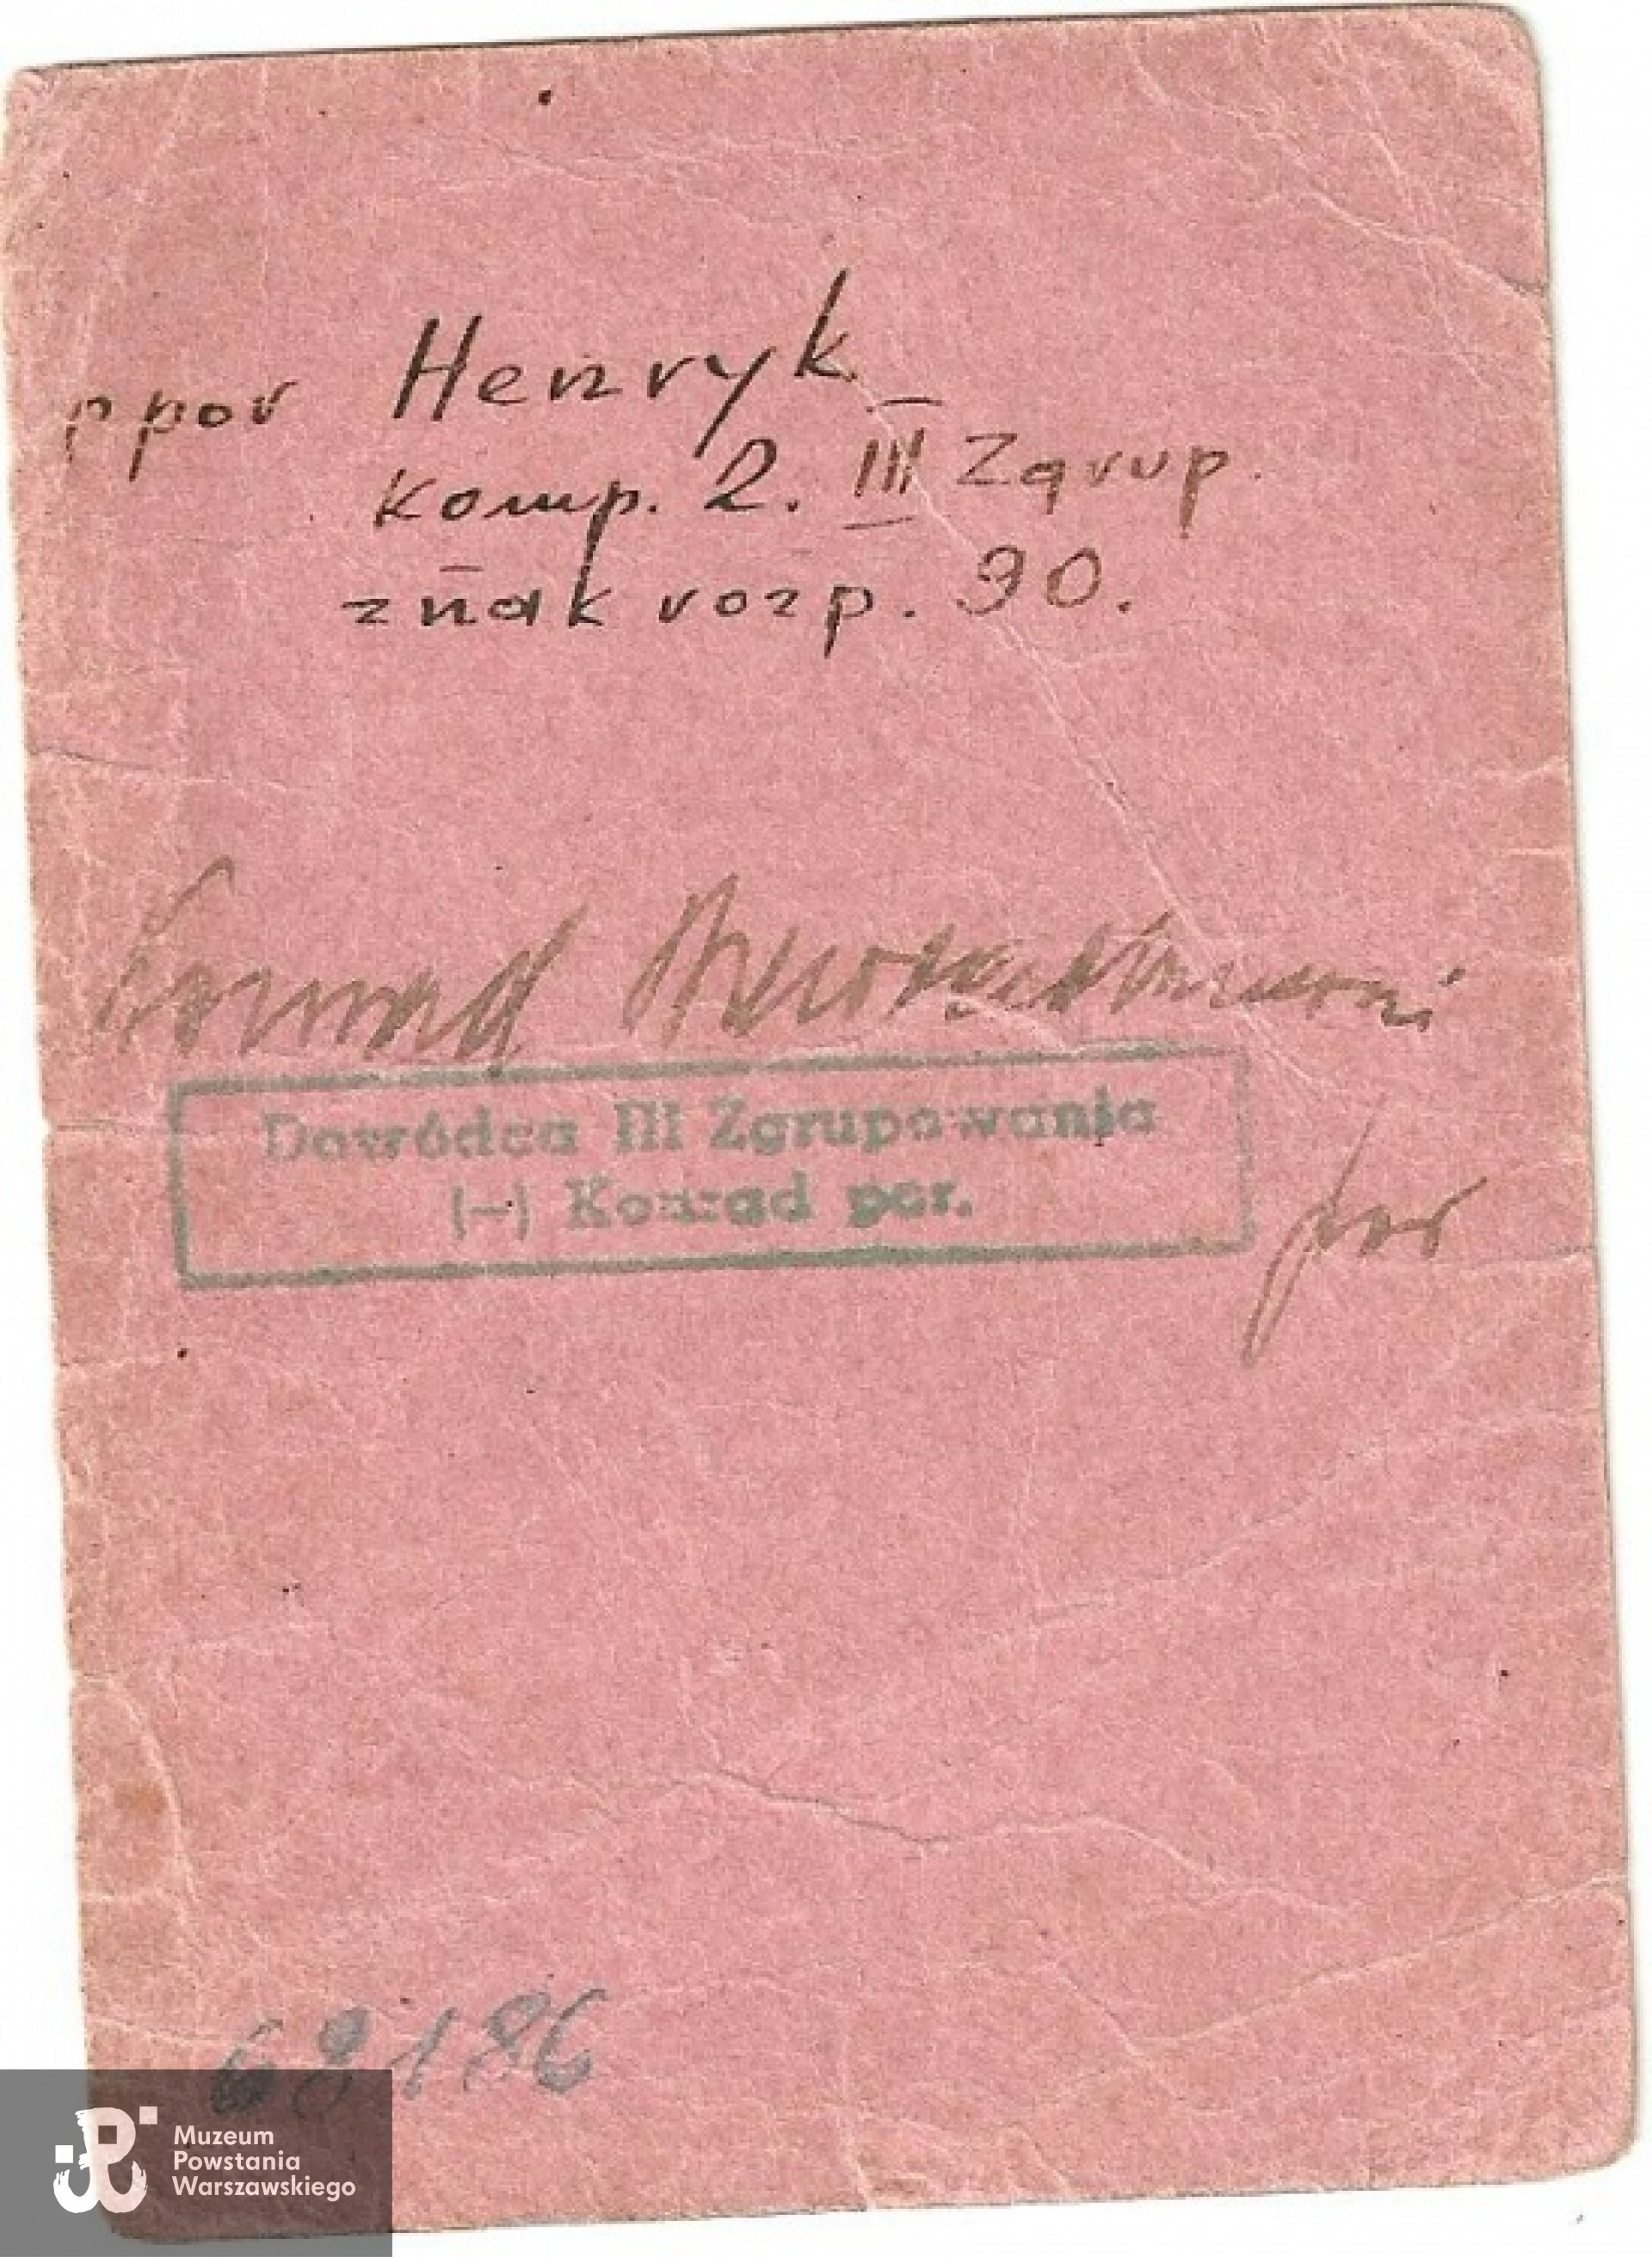 ppor Henryk
komp. 2. III Zgrup.
znak rozp. 90.
Konrad
Dowódca III Zgrupowania
(—) Konrad por.
por
68186
Muzeum
Powstania
Warszawskiego